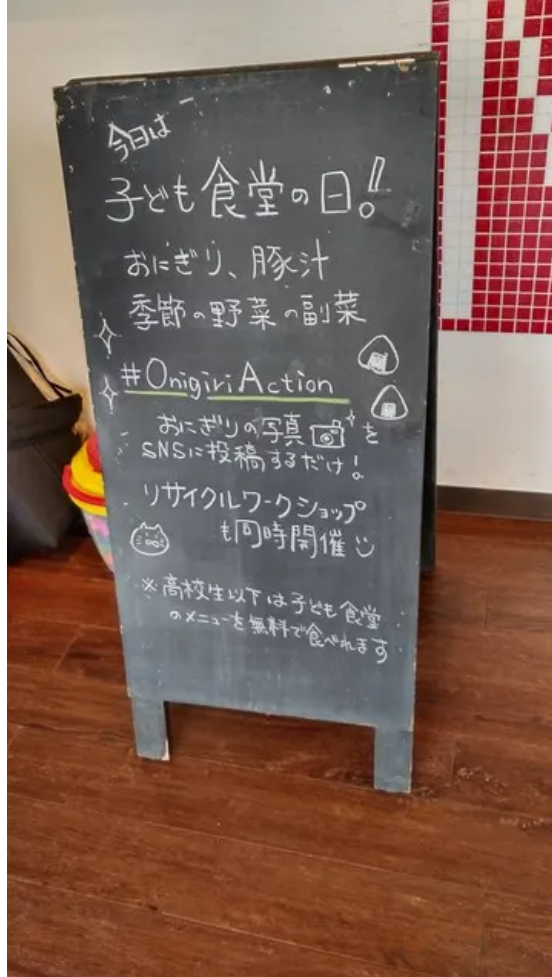 今日は
子ども食堂の日!
おにぎり、豚汁
季節の野菜の副菜
#OnigiriAction
おにぎりの写真を
SNSに投稿するだけ!
リサイクルワークショップ
も同時開催
※高校生以下は子ども食堂
のメニューを無料で食べれます